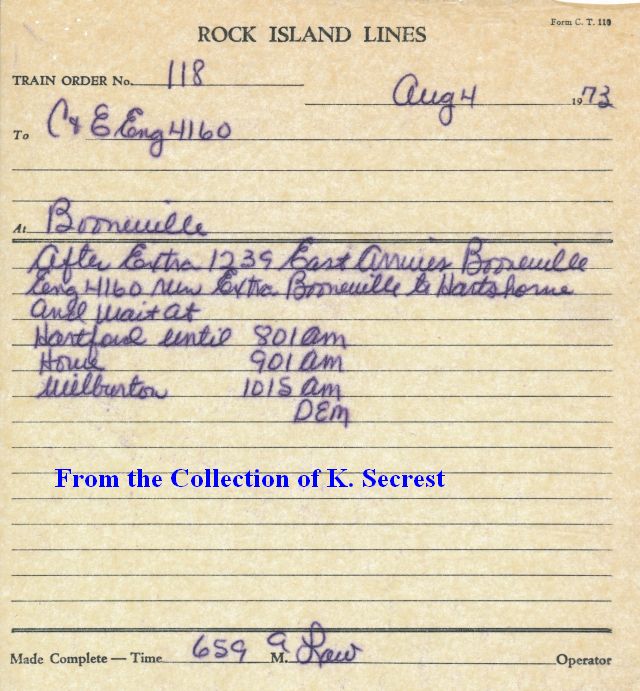 Form C. T. 110
ROCK ISLAND LINES
TRAIN ORDER No. 118
Aug 4 1973
To C & E Eng 4160
At Booneville
After Extra 1239 East Arrives Booneville
Eng 4160 run Extra Booneville to Hartshorne
and wait at
Hartford until 801 am
Howe 901 am
Wilburton 1015 am
DEM
From the Collection of K. Secrest
Made Complete — Time 659 A M. Law Operator